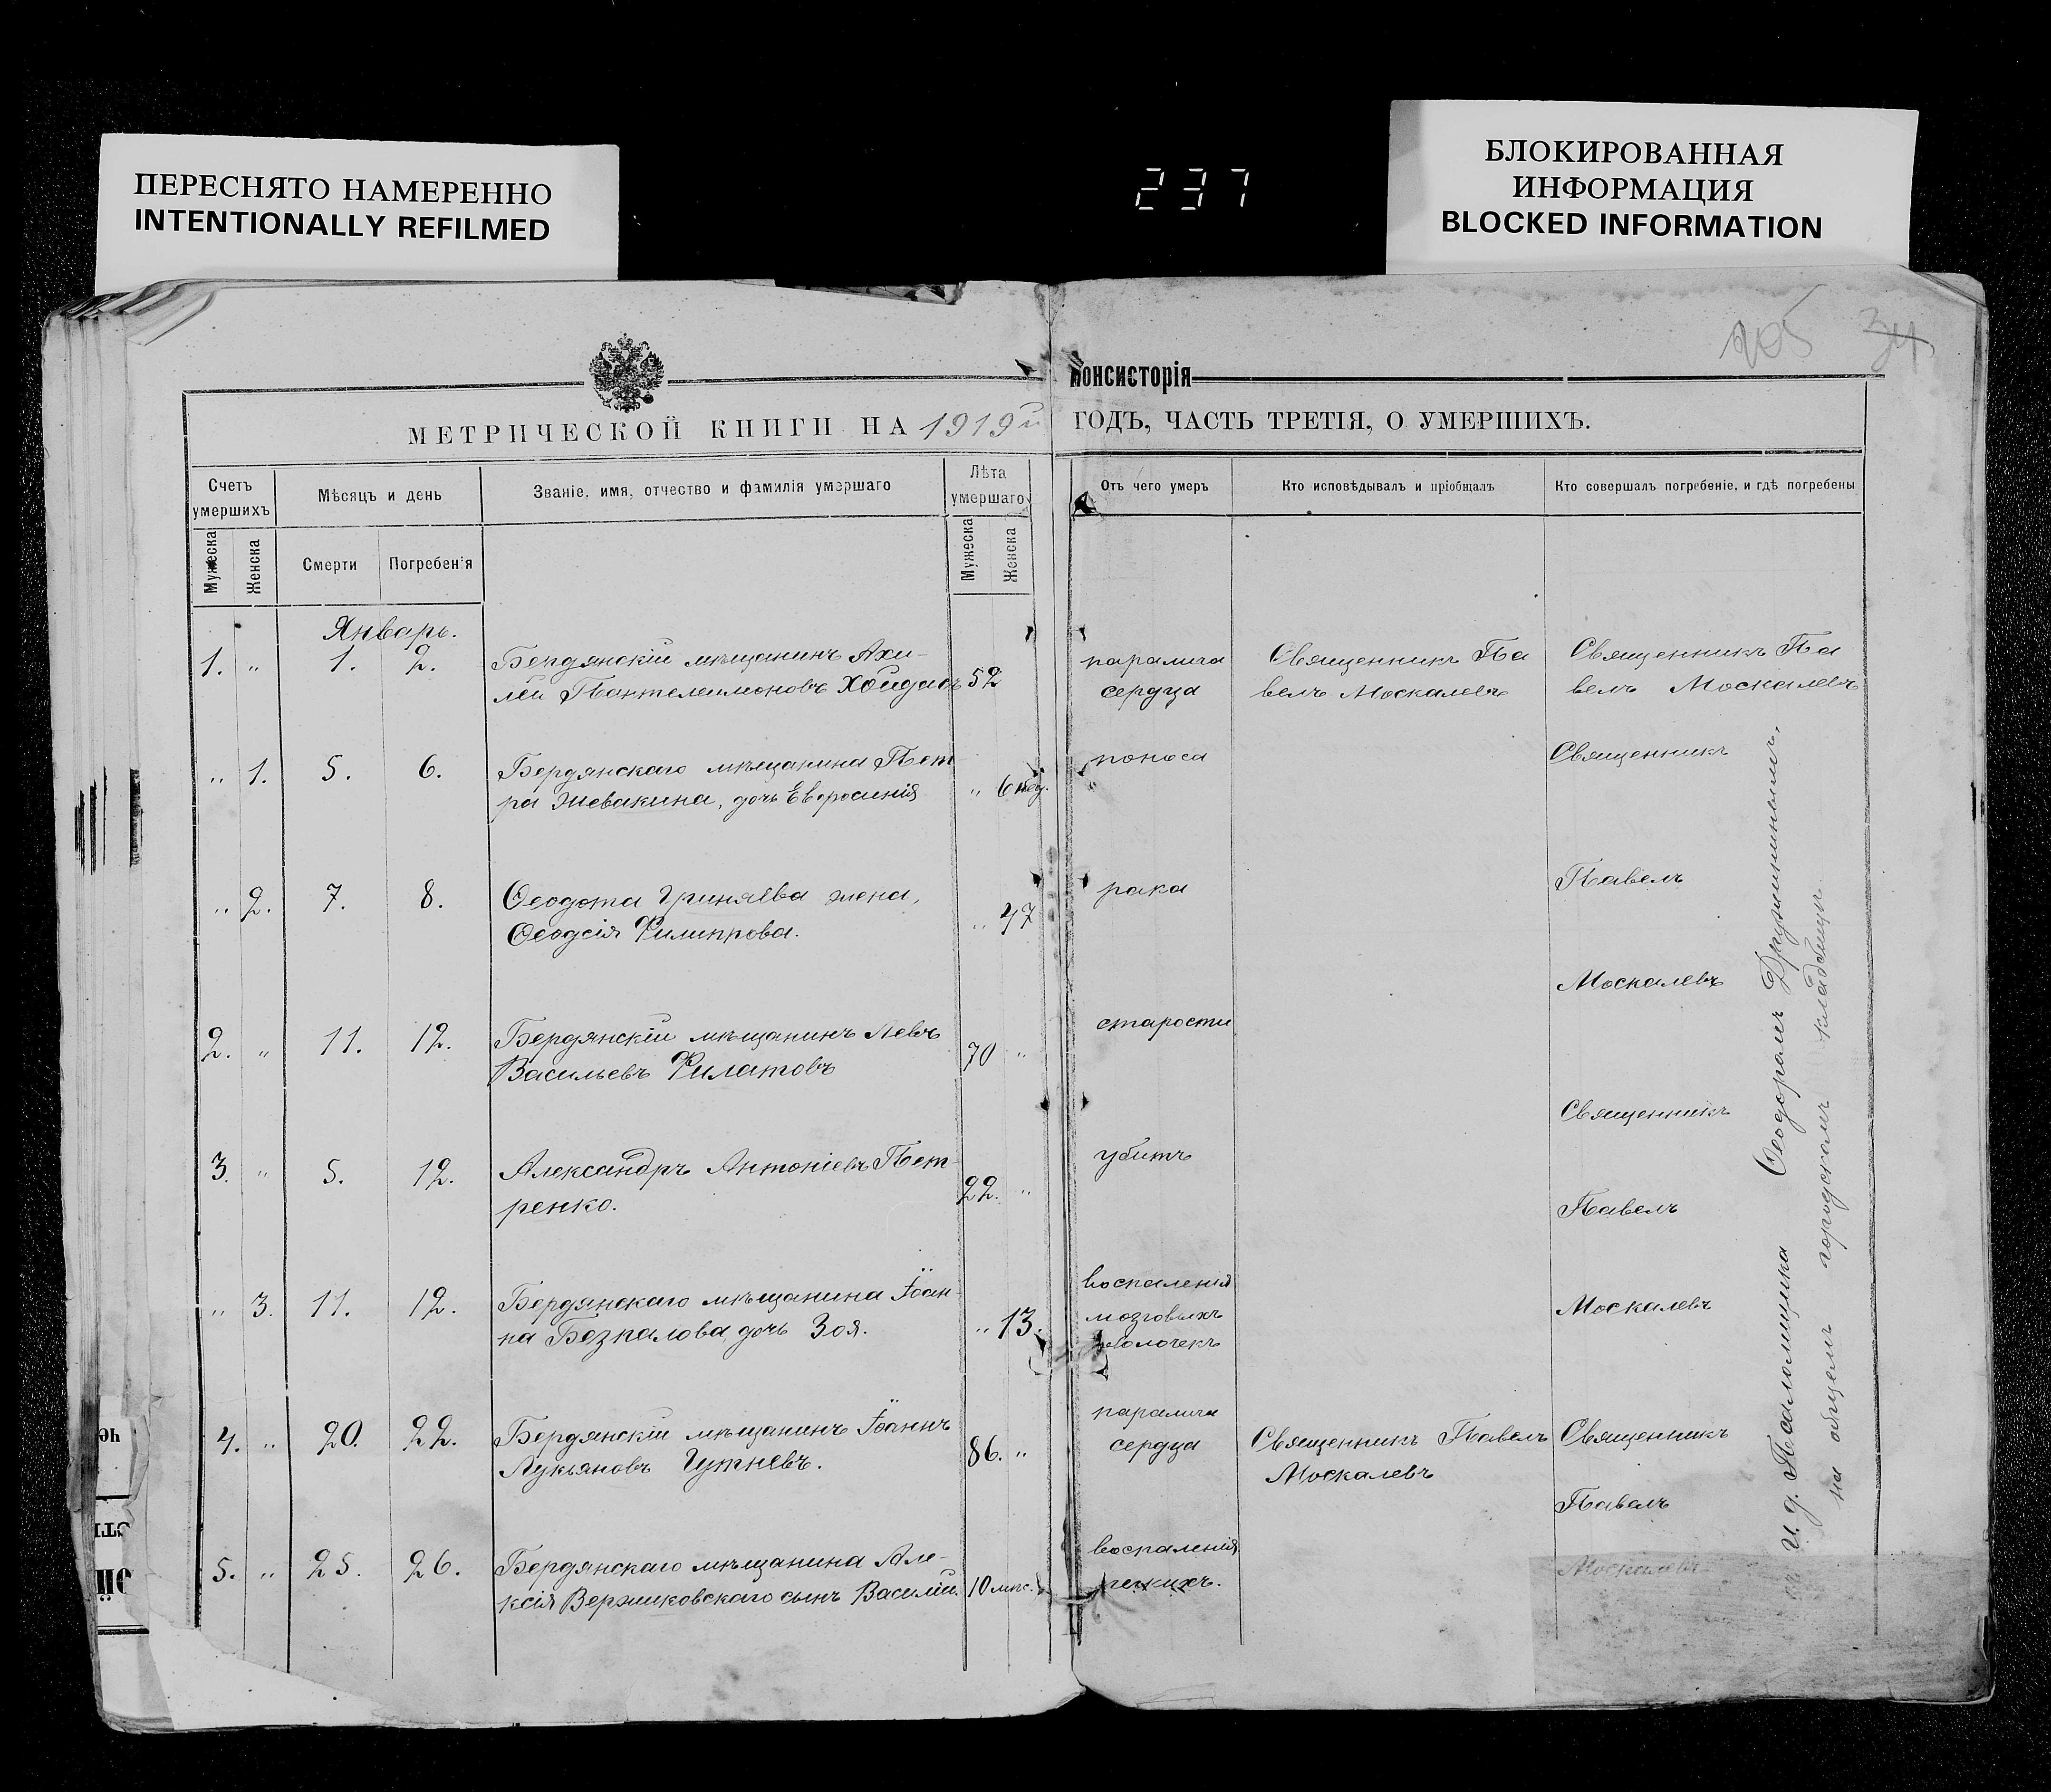 ПЕРЕСНЯТО НАМЕРЕННО
INTENTIONALLY REFILMED
237
БЛОКИРОВАННАЯ
ИНФОРМАЦИЯ
BLOCKED INFORMATION
205 34
консисторія
МЕТРИЧЕСКОЙ КНИГИ НА 1919й ГОДЪ, ЧАСТЬ ТРЕТІЯ, О УМЕРШИХЪ.
Счетъ умершихъ
Мѣсяцъ и день
Званіе, имя, отчество и фамилія умершаго
Лѣта умершаго
Отъ чего умеръ
Кто исповѣдывалъ и пріобщалъ
Кто совершалъ погребеніе, и гдѣ погребены
Мужеска
Женска
Смерти
Погребенія
Мужеска
Женска
Январь.
1. „ 1. 2. Бердянскій мѣщанинъ Ахи- парализа Священникъ Па Священникъ Па
лей Пантелеимоновъ 52 сердца велъ Москалевъ велъ Москалевъ
„ 1. 5. 6. Бердянскаго мѣщанина Пет поноса Священникъ
ра Жевакина, дочь Евфросинія „ 6 нед.
„ 2. 7. 8. Ѳеодота Гриняева жена, рака Павелъ
Ѳеодсія Филиппова. „ 47
Москалевъ
2. „ 11. 12. Бердянскій мѣщанинъ Левъ старости
Васильевъ Филатовъ 70 „
Священникъ
3. „ 5. 12. Александръ Антоніевъ Пет- убитъ
ренко. 22. „ Павелъ
„ 3. 11. 12. Бердянскаго мѣщанина Іоан- воспаленія
на Безпалова, дочь Зоя. „ 13. мозговыхъ Москалевъ
оболочекъ
4. „ 20. 22. Бердянскій мѣщанинъ Іоаннъ парализа
Лукьяновъ Гутневъ. 86. „ сердца Священникъ Павелъ Священникъ
Москалевъ
Павелъ
5. „ 25. 26. Бердянскаго мѣщанина Але- воспаленія Москалевъ
ксія Вержиковскаго сынъ Василій. 10 мѣс. легкихъ.
съ и. д. Псаломщика Ѳеодоромъ Дружининымъ,
на общемъ городскомъ кладбищѣ